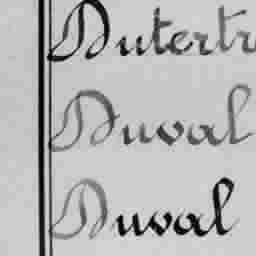 Dutertr
Duval
Duval